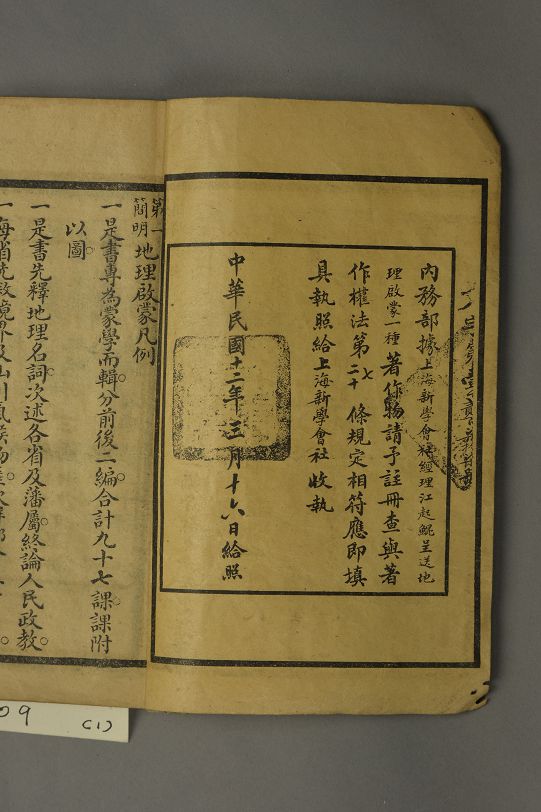 內務部據上海新學會社經理江起鯤呈送地
理啟蒙一種著作物請予註冊查與著
作權法第二十七條規定相符應即填
具執照給上海新學會社收執
中華民國十二年三月十六日給照
第一簡明地理啟蒙凡例
一是書專為蒙學而輯分前後二編合計九十七課課附
以圖
一是書先釋地理名詞次述各省及藩屬終論人民政教
09
(1)